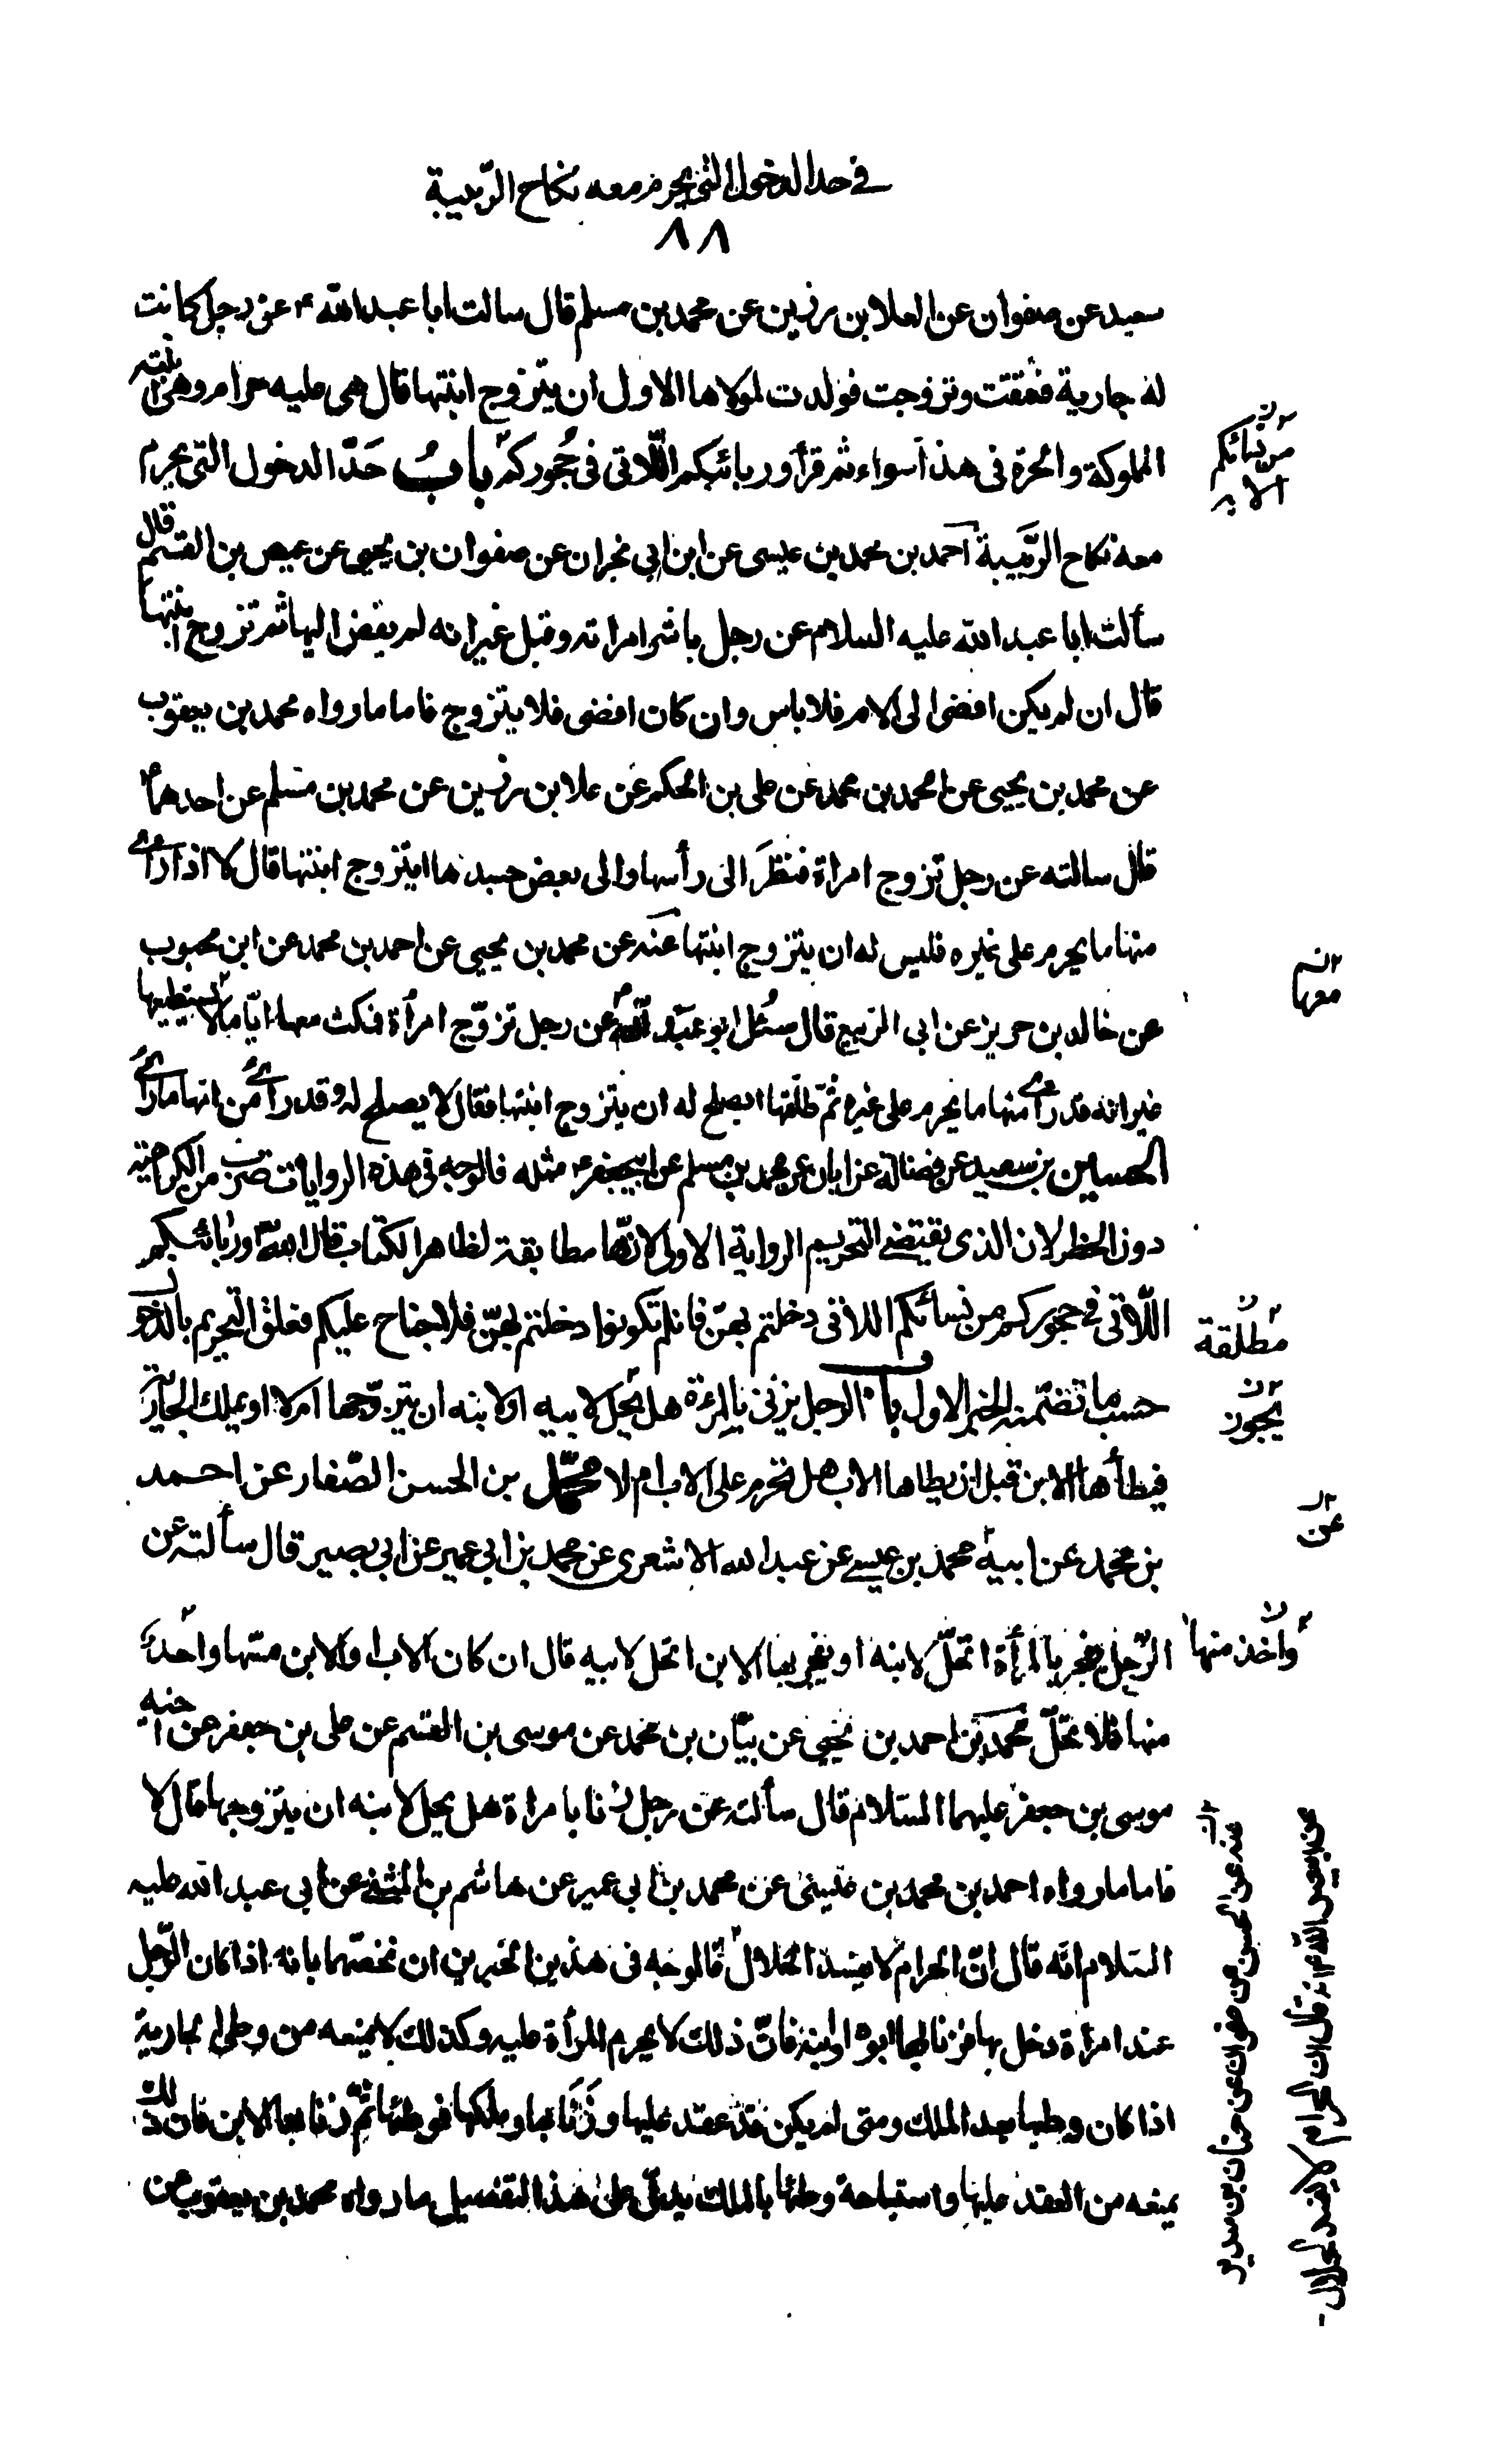 في حد الدخول التي يحرم معه نكاح الربيبة
٨٨
سعيد عن صفوان عن العلا بن رزين عن محمد بن مسلم قال سالت ابا عبد الله ع عن رجل كانت
له جارية فعتقت وتزوجت فولدت لمولاها الاول ان يتزوج ابنتها قال هي عليه حرام وهي ابنته
المملوكة والحرة في هذا سواء ثم قرأ وربائبكم اللاتي في حجوركم باب حد الدخول التي يحرم
من نسائكم
الاية
معه نكاح الربيبة احمد بن محمد بن عيسى عن ابن ابي نجران عن صفوان بن يحيى عن عيص بن القسم قال
سألت ابا عبد الله عليه السلام عن رجل باشر امراته وقبل غير انه لم يفض اليها ثم تزوج ابنتها
قال ان لم يكن افضى الى الام فلا باس وان كان افضى فلا يتزوج فاما ما رواه محمد بن يعقوب
عن محمد بن يحيى عن احمد بن محمد عن علي بن الحكم عن علا بن رزين عن محمد بن مسلم عن احدهما ع
قال سالته عن رجل تزوج امراة فنظر الى رأسها والى بعض جسدها ايتزوج ابنتها قال لا اذا راى
منها ما يحرم على غيره فليس له ان يتزوج ابنتها عنه عن محمد بن يحيى عن احمد بن محمد عن ابن محبوب
معها
عن خالد بن حريز عن ابي الربيع قال سئل ابو عبد الله ع عن رجل تزوج امرأة فمكث معها اياما لا يستطيعها
غير انه قد راى منها ما يحرم على غيره ثم طلقها ايصلح له ان يتزوج ابنتها فقال لا يصلح له وقد راى من امها ما راى
الحسين بن سعيد عن فضالة عن ابان عن محمد بن مسلم عن ابي جعفر ع مثله فالوجه في هذه الروايات ضرب من الكراهية
دون الحظر لان الذي يقتضي التحريم الرواية الاولى لانها مطابقة لظاهر الكتاب قال الله وربائبكم
اللاتي في حجوركم من نسائكم اللاتي دخلتم بهن فان لم تكونوا دخلتم بهن فلا جناح عليكم فعلق التحريم بالدخول
مطلقة
حسب ما تضمنه الخبر الاول باب الرجل يزني بالمرءة هل يحل لابيه او لابنه ان يتزوجها ام لا او يملك الجارية
يجوز
فيطأها الابن قبل ان يطاها الاب هل تحرم على الاب ام لا محمد بن الحسن الصفار عن احمد
عن
بن محمد عن ابيه محمد بن عيسى عن عبد الله الاشعري عن محمد بن ابي عمير عن ابي بصير قال سألته عن
الرجل يفجر بالمرأة اتحل لابنه او يفجر بها الابن اتحل لابيه قال ان كان الاب او الابن مسها واحد
واخذ منها
منها فلا تحل محمد بن احمد بن يحيى عن بنان بن محمد عن موسى بن القسم عن علي بن جعفر عن اخيه
موسى بن جعفر عليهما السلام قال سألته عن رجل زنا بامراة هل يحل لابنه ان يتزوجها قال لا
فاما ما رواه احمد بن محمد بن عيسى عن محمد بن ابي عمير عن هاشم بن المثنى عن ابي عبد الله عليه
السلام انه قال ان الحرام لا يفسد الحلال فالوجه في هذين الخبرين ان نخصهما بانه اذا كان الرجل
عند امرأة دخل بها فزنا بها ابوه او ابنه فان ذلك لا يحرم المرأة عليه وكذلك لا يمنعه من وطى الجارية
اذا كان وطيها بعد الملك ومتى لم يكن قد عقد عليها وزنا بها وملكها فوطئها ثم زنا بها الابن فان ذلك
يمنعه من العقد عليها واستباحة وطئها بالملك يدل على هذا التفصيل ما رواه محمد بن يعقوب عن
عنه عن الحسن عن صفوان عن حنان بن سدير
انه قال ان الحرام لا يفسد الحلال